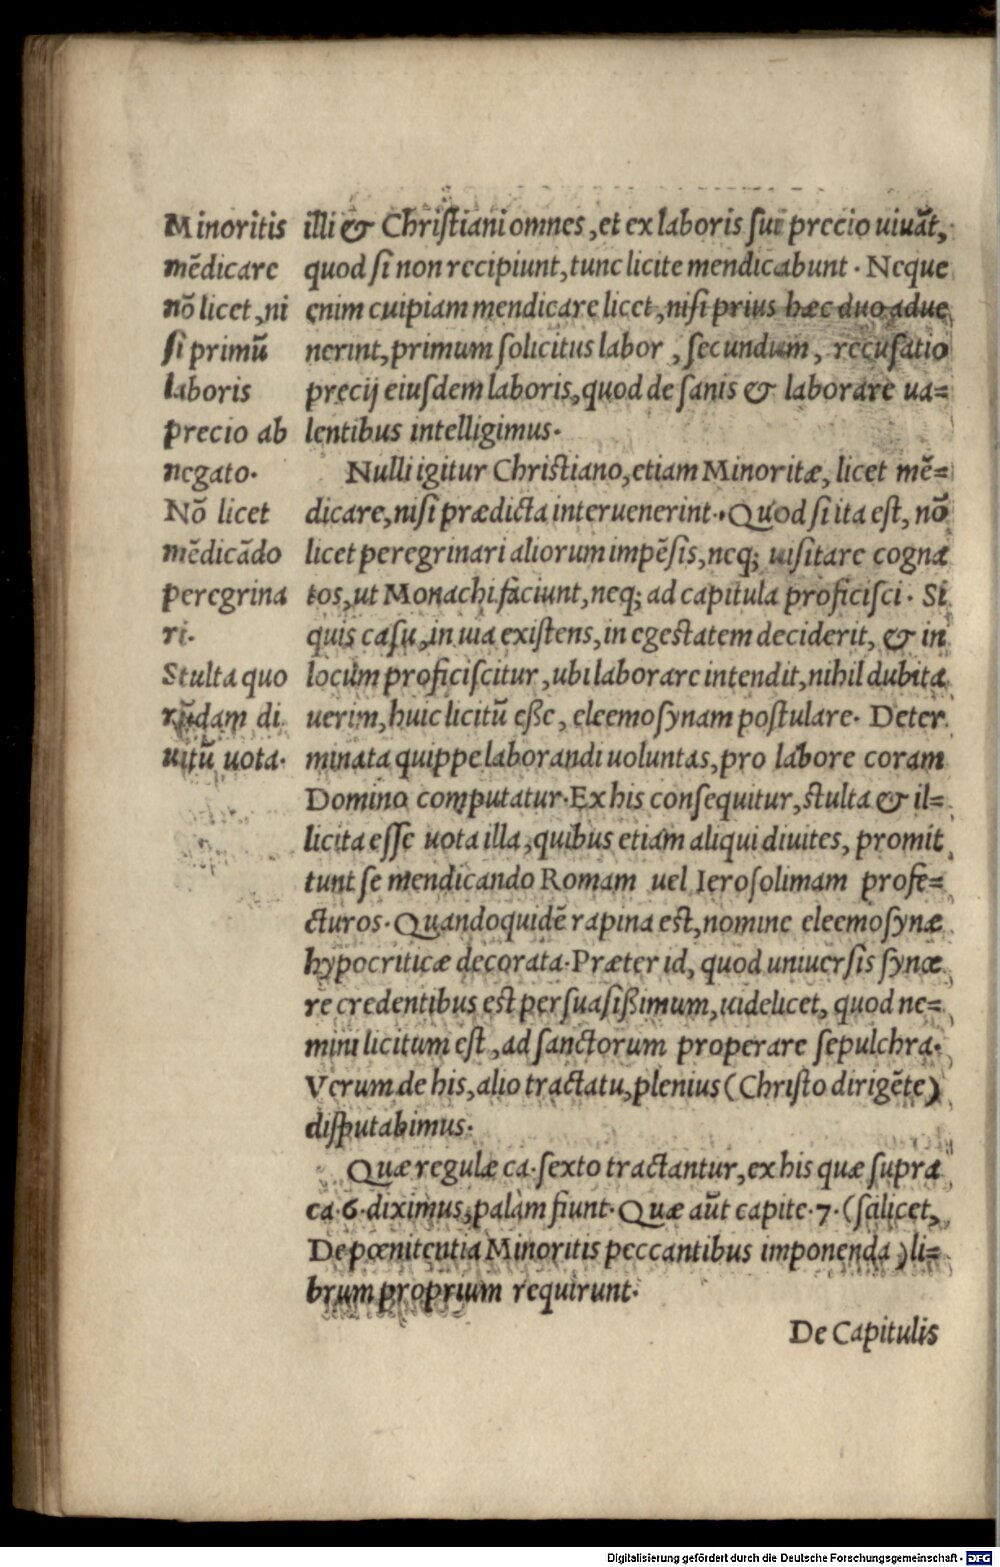 Minoritis
mēdicare
nō licet, ni
ſi primū
laboris
precio ab
negato.
Nō licet
mēdicādo
peregrina
ri.
Stulta quo
rūdam di
uitū uota.
illi & Chriſtiani omnes, et ex laboris ſui precio uiuāt,
quod ſi non recipiunt, tunc licite mendicabunt. Neque
enim cuipiam mendicare licet, niſi prius hæc duo adue
nerint, primum ſolicitus labor, ſecundum, recuſatio
precij eiuſdem laboris, quod de ſanis & laborare ua=
lentibus intelligimus.
Nulli igitur Chriſtiano, etiam Minoritæ, licet mē=
dicare, niſi prædicta interuenerint. Quod ſi ita eſt, nō
licet peregrinari aliorum impēſis, neq; uiſitare cogna
tos, ut Monachi faciunt, neq; ad capitula proficiſci. Si
quis caſu, in uia exiſtens, in egeſtatem deciderit, & in
locum proficiſcitur, ubi laborare intendit, nihil dubita
uerim, huic licitū eſſe, eleemoſynam poſtulare. Deter
minata quippe laborandi uoluntas, pro labore coram
Domino computatur. Ex his conſequitur, ſtulta & il=
licita eſſe uota illa, quibus etiam aliqui diuites, promit
tunt ſe mendicando Romam uel Ieroſolimam profe=
cturos. Quandoquidē rapina eſt, nomine eleemoſynæ
hypocriticæ decorata. Præter id, quod uniuerſis ſynce
re credentibus eſt perſuaſiſſimum, uidelicet, quod ne=
mini licitum eſt, ad ſanctorum properare ſepulchra.
Verum de his, alio tractatu, plenius (Chriſto dirigēte)
diſputabimus.
Quæ regulæ ca. ſexto tractantur, ex his quæ ſupra
ca. 6. diximus, palàm fiunt. Quæ aūt capite. 7. (ſcilicet,
De pœnitentia Minoritis peccantibus imponenda) li=
brum proprium requirunt.
De Capitulis
Digitalisierung gefördert durch die Deutsche Forschungsgemeinschaft - DFG